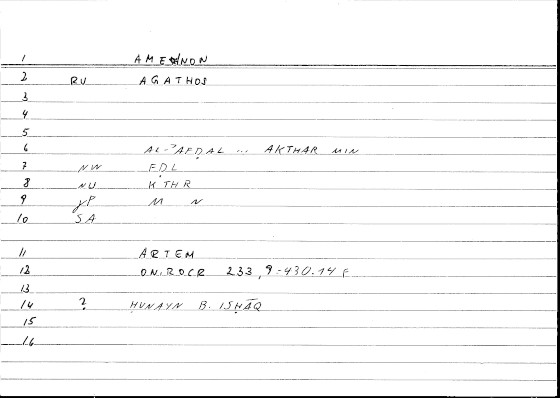 1 AMEINON
2 RU AGATHOS
3
4
5
6 AL-ʾAFḌAL ... AKTHAR MIN
7 NW FḌL
8 NU KTHR
9 YP M N
10 SA
11 ARTEM
12 ON.ROCR 233,9-430.14 F
13
14 ? ḤUNAYN B. ISḤĀQ
15
16